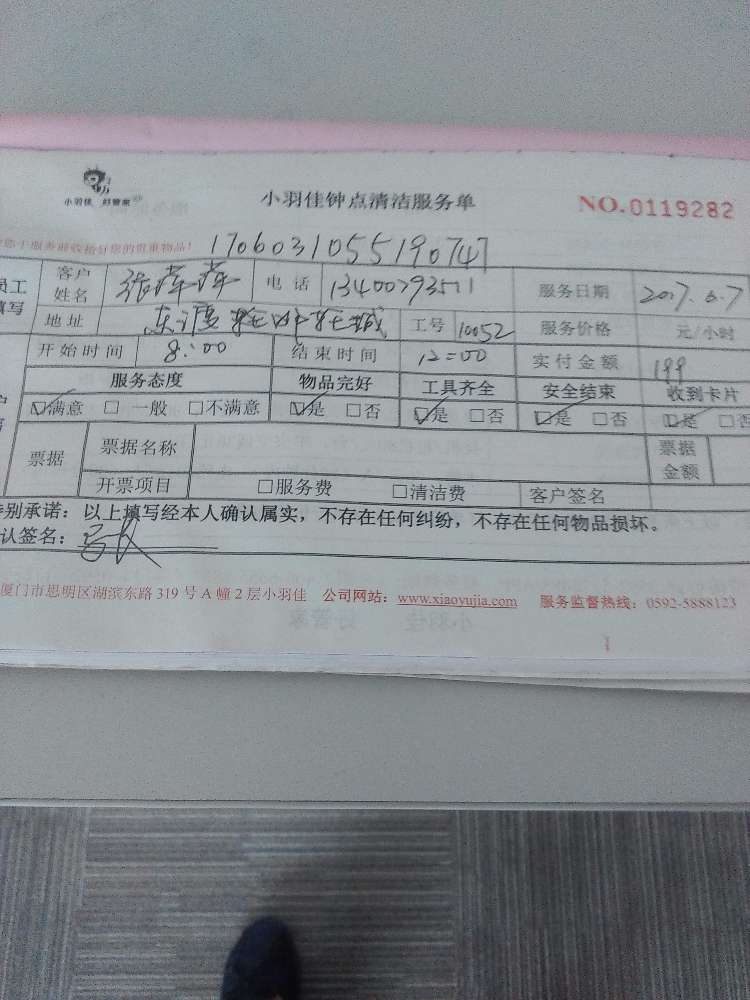 小羽佳 好管家
小羽佳钟点清洁服务单
NO.0119282
您于服务前收拾好您的贵重物品!
1706031055190747
员工填写 客户姓名 张萍萍 电话 13400793511 服务日期 2017.6.7
地址 工号 10052 服务价格 元/小时
开始时间 8:00 结束时间 12:00 实付金额 199
服务态度 物品完好 工具齐全 安全结束 收到卡片
☑满意 □一般 □不满意 ☑是 □否 ☑是 □否 ☑是 □否 ☑是 □否
票据 票据名称 票据金额
开票项目 □服务费 □清洁费 客户签名
特别承诺：以上填写经本人确认属实，不存在任何纠纷，不存在任何物品损坏。
认签名：
厦门市思明区湖滨东路 319 号 A 幢 2 层小羽佳 公司网站：www.xiaoyujia.com 服务监督热线：0592-5888123